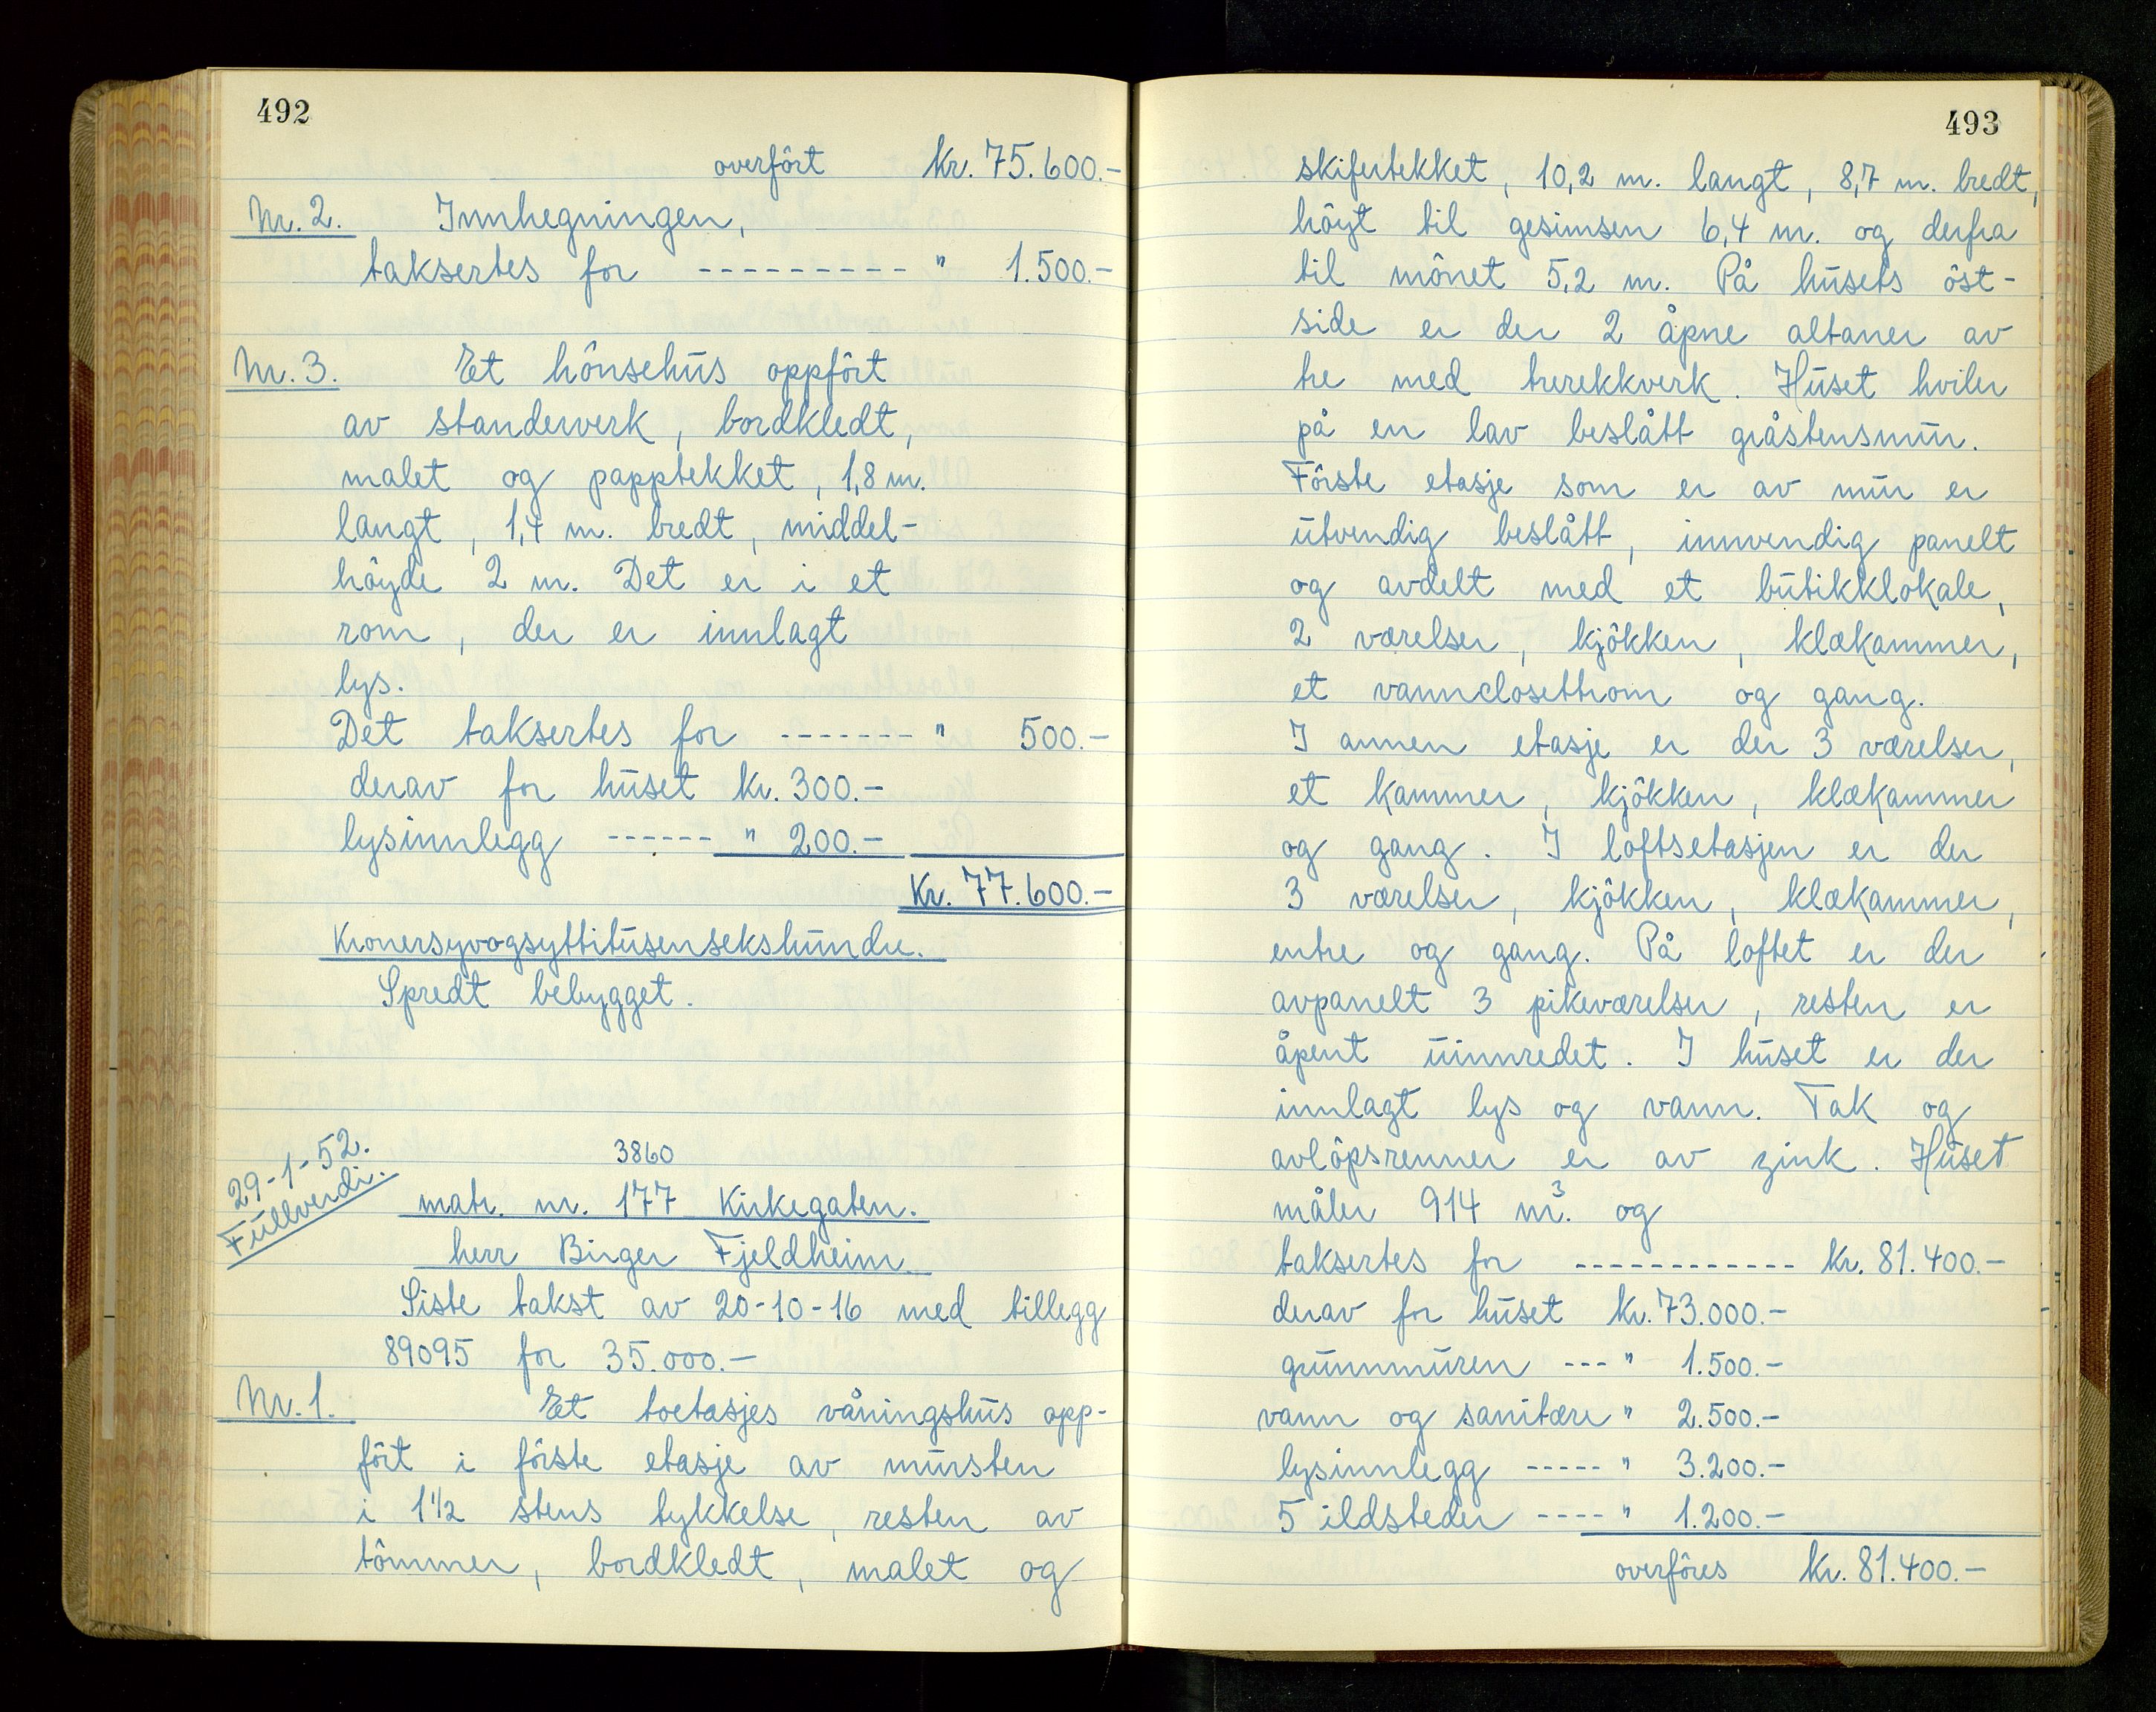 492
overfôrt kr. 75.600.-
Nr. 2. Innhegningen,
taksertes for --------- " 1.500.-
Nr. 3. Et hônsehus oppfôrt
av standerverk, bordkledt,
malet og papptekket, 1,8 m.
langt, 1,4 m. bredt, middel-
hôyde 2 m. Det er i et
rom, der er innlagt
lys.
Det taksertes for ------- " 500.-
derav for huset kr. 300.-
lysinnlegg ------ " 200.-
Kr. 77.600.-
Kronersyvogsyttitusensekshundre.
Spredt bebygget.
29-1-52.
Fullverdi.
3860
matr. nr. 177 Kirkegaten.
herr Birger Fjeldheim.
Siste takst av 20-10-16 med tillegg
89095 for 35.000.-
Nr. 1. Et toetasjes våningshus opp-
fôrt i fôrste etasje av mursten
i 1 1/2 stens tykkelse, resten av
tômmer, bordkledt, malet og
493
skifertekket, 10,2 m. langt, 8,7 m. bredt,
hôyt til gesimsen 6,4 m. og derfra
til mônet 5,2 m. På husets ôst-
side er der 2 åpne altaner av
tre med trerekkverk. Huset hviler
på en lav beslått gråstensmur.
Fôrste etasje som er av mur er
utvendig beslått, innvendig panelt
og avdelt med et butikklokale,
2 værelser, kjôkken, klækammer,
et vannclosettrom og gang.
I annen etasje er der 3 værelser,
et kammer, kjôkken, klækammer
og gang. I loftsetasjen er der
3 værelser, kjôkken, klækammer,
entre og gang. På loftet er der
avpanelt 3 pikeværelser, resten er
åpent uinnredet. I huset er der
innlagt lys og vann. Tak og
avlôpsrenner er av zink. Huset
måler 914 m³. og
taksertes for ------------ kr. 81.400.-
derav for huset kr. 73.000.-
grunnmuren --- " 1.500.-
vann og sanitære " 2.500.-
lysinnlegg ----- " 3.200.-
5 ildsteder ---- " 1.200.-
overfôres kr. 81.400.-